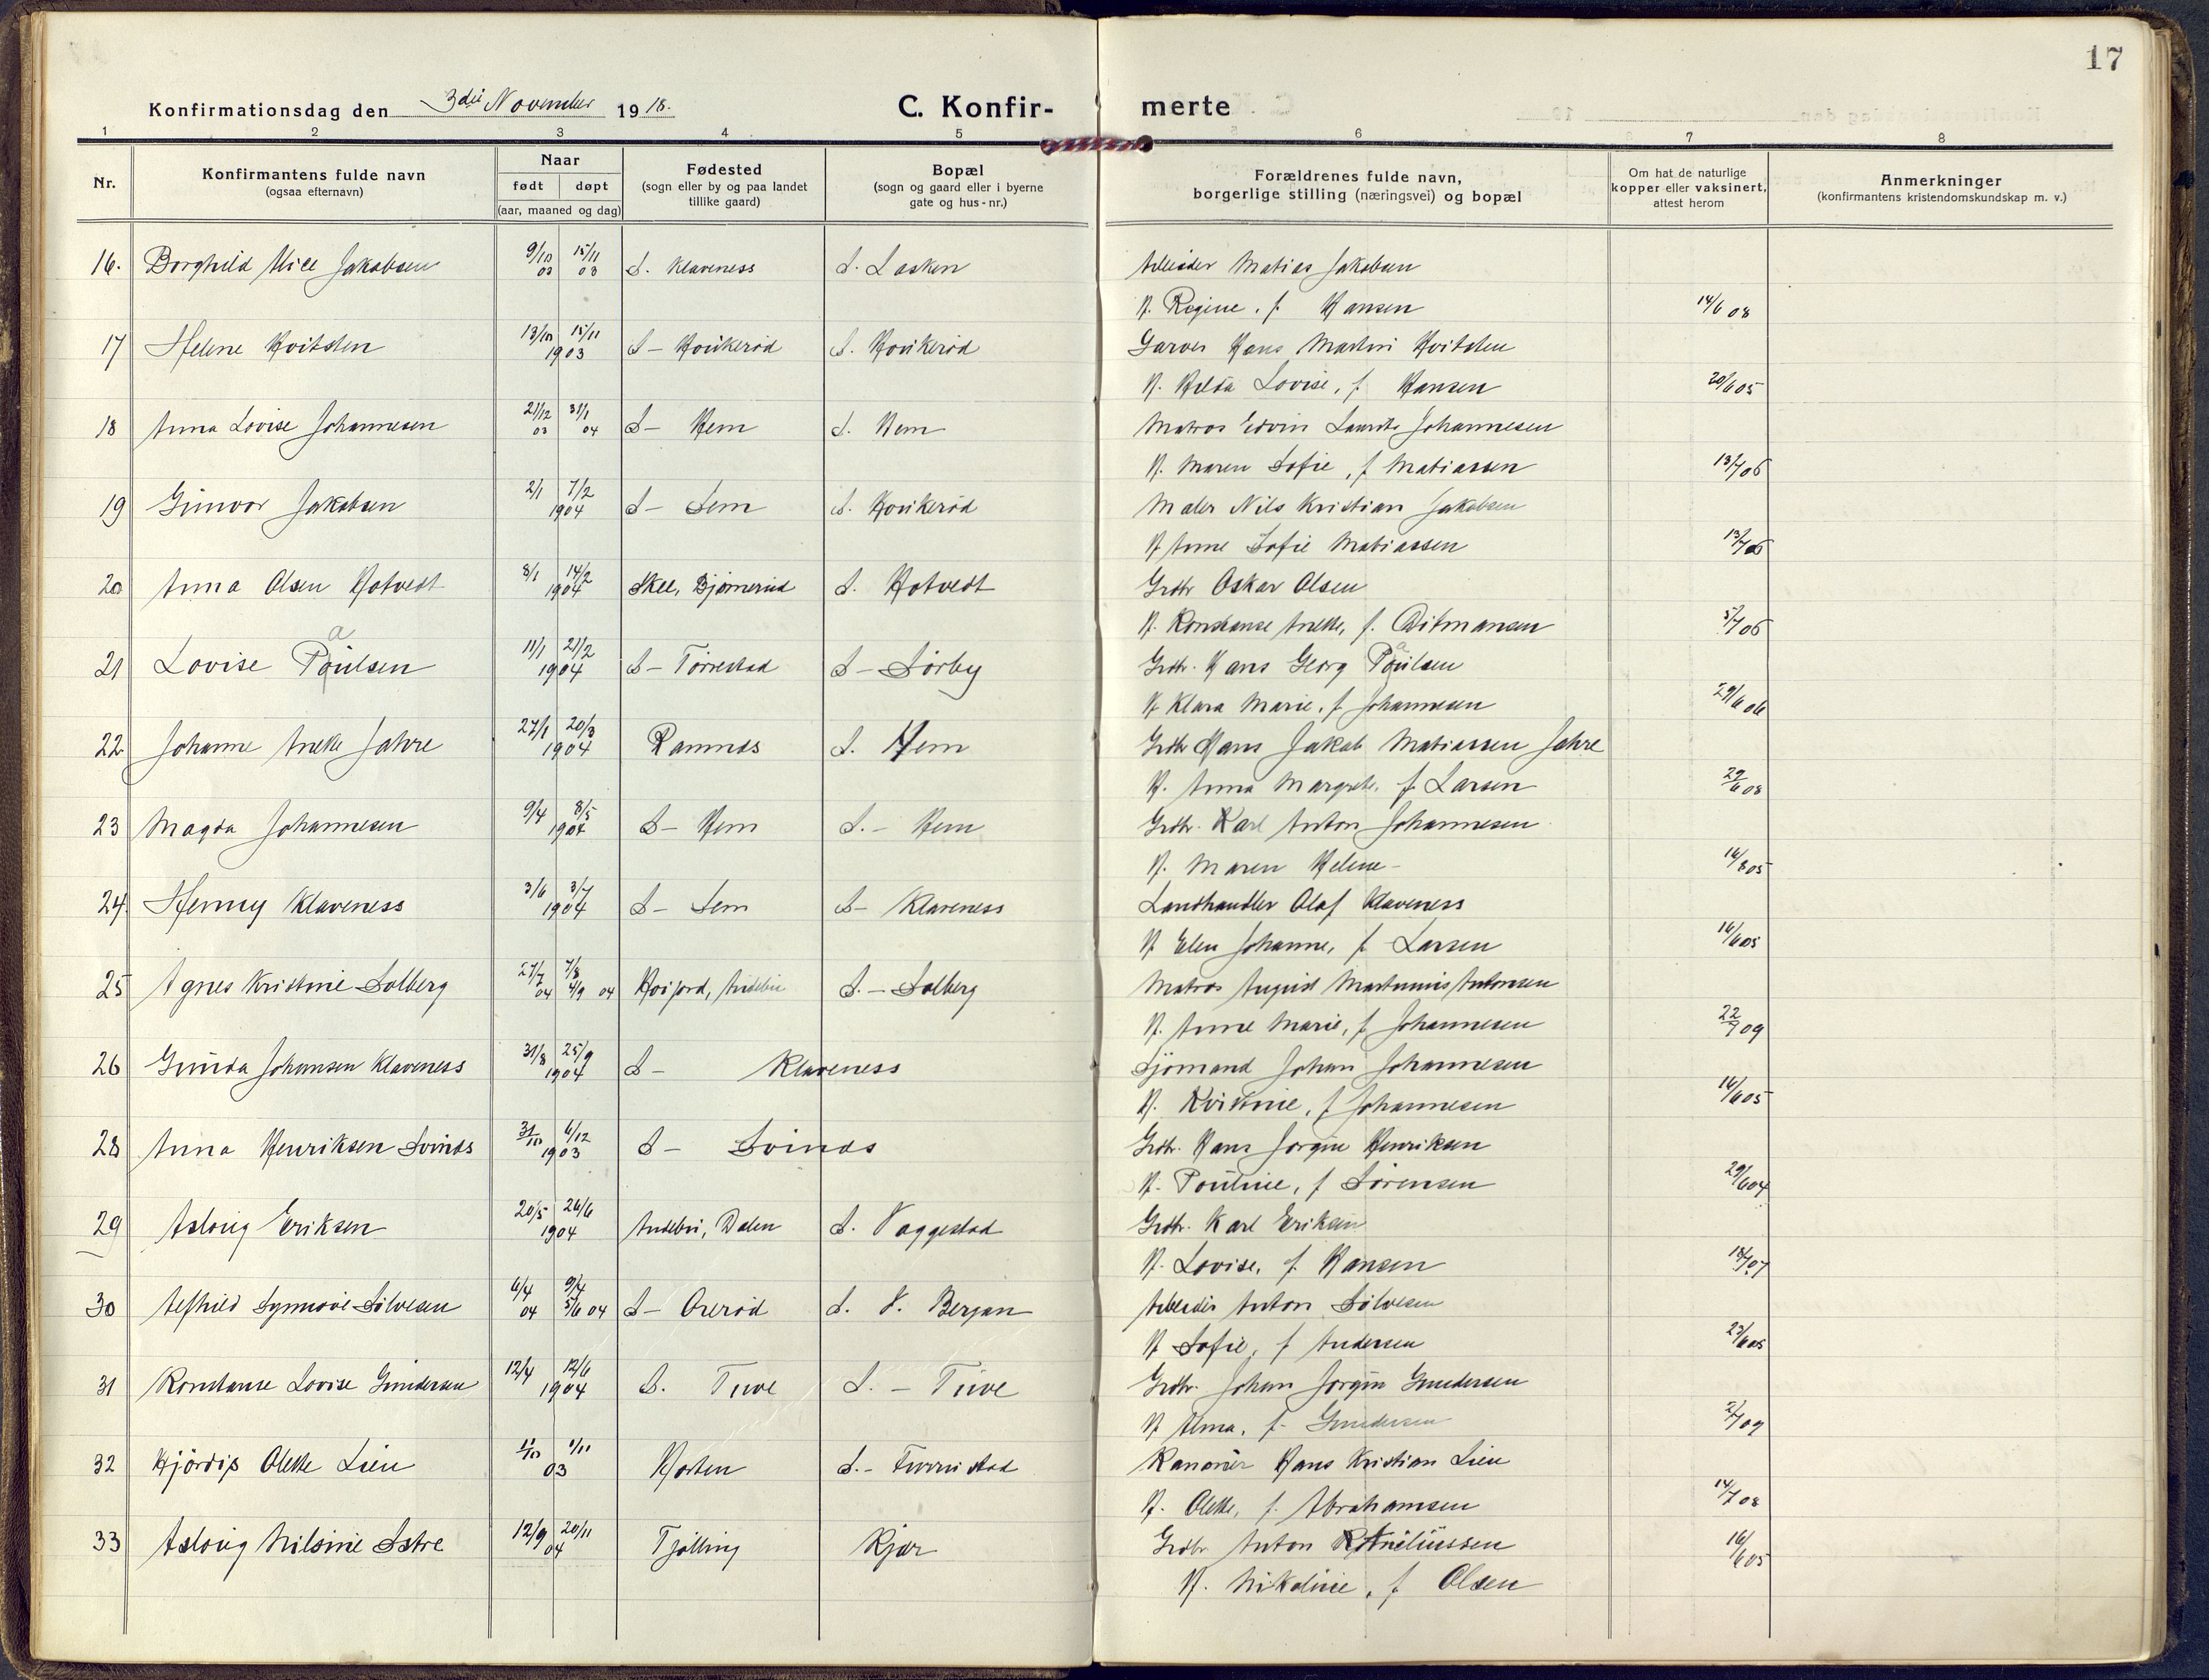 17
Konfirmationsdag den 3die November 1918.
C. Konfir-merte
1 2 3 4 5 6 7 8
Nr.
Konfirmantens fulde navn
(ogsaa efternavn)
Naar
født døpt
(aar, maaned og dag)
Fødested
(sogn eller by og paa landet
tillike gaard)
Bopæl
(sogn og gaard eller i byerne
gate og hus-nr.)
Forældrenes fulde navn,
borgerlige stilling (næringsvei) og bopæl
Om hat de naturlige
kopper eller vaksinert,
attest herom
Anmerkninger
(konfirmantens kristendomskundskap m. v.)
16. Borghild Alice Jakobsen 9/10 03 15/11 03 S. Klaveness S. Lasken Arbeider Matias Jakobsen
H. Regine, f. Hansen 14/6 08
17 Helene Hvitsten 13/10 15/11 1903 S- Houkerød S. Houkerød Garver Hans Martin Hvitsten
H. Hilda Lovise, f. Hansen 20/6 05
18 Anna Lovise Johannesen 21/12 03 31/1 04 S- Hem S. Hem Matros Edvin Laurits Johannesen
H. Maren Sofie, f. Matiassen 13/7 06
19 Gunvor Jakobsen 2/1 7/2 1904 S- Sem S. Houkerød Maler Nils Kristian Jakobsen
H Anne Sofie Matiassen 13/7 06
20 Anna Olsen Hotvedt 8/1 14/2 1904 Skee, Bjørnerud S. Hotvedt Grdbr Oskar Olsen
H. Konstanse Anette, f. Ditmansen 5/7 06
21 Lovise Paulsen 11/1 21/2 1904 S- Torrestad S- Sørby Grdbr. Hans Georg Paulsen
H. Klara Marie, f. Johannesen 29/6 06
22 Johanne Anette Jahre 27/1 20/3 1904 Ramnes S. Hem Grdbr Hans Jakob Matiassen Jahre
H. Anna Margrete, f Larsen 22/6 08
23 Magda Johannesen 9/4 8/5 1904 S- Hem S.- Hem Grdbr. Karl Anton Johannesen
H. Maren Helene- 16/8 05
24. Henny Klaveness 3/6 3/7 1904 S- Sem S- Klaveness Landhandler Olaf Klaveness
H Elen Johanne, f. Larsen 16/6 05
25 Agnes Kristine Solberg 27/7 04 7/8 4/9 04 Høijord, Andebu S.- Solberg Matros August Martinius Antonsen
H. Anne Marie, f Johannesen 22/7 09
26 Gunda Johansen Klaveness 31/8 25/9 1904 S- Klaveness Sjömand Johan Johannesen
H. Kristine, f Johannesen 16/6 05
28 Anna Henriksen Svinds 31/10 6/12 1903 S- Svinds Grdbr. Hans Jørgine Henriksen
H. Pouline, f Sørensen 29/6 04
29 Aslaug Eriksen 20/5 26/6 1904 Andebu, Dalen S. Vaggestad Grdbr. Karl Eriksen
H. Lovise, f. Hansen 18/7 07
30 Alfhild Synnøve Sølvesen 6/4 04 9/4 5/6 04 S- Orerød S. V. Bergan Arbeider Anton Sølvesen
H Sofie, f Andersen 23/6 05
31 Konstanse Lovise Gundersen 12/4 12/6 1904 S. Tuve S.- Tuve Grdbr. Johan Jørgen Gundersen
H Alma, f. Gundersen 2/7 09
32 Hjördis Olette Lien 11/10 1/11 03 Horten S.- Furustad Kanonér Hans Kristian Lien
H. Olette, f. Abrahamsen 14/7 08
33 Aslaug Nilsine Istre 12/9 20/11 04 Tjølling Kjær Grdbr Anton Korneliussen 16/6 05
H. Nikoline, f Olsen